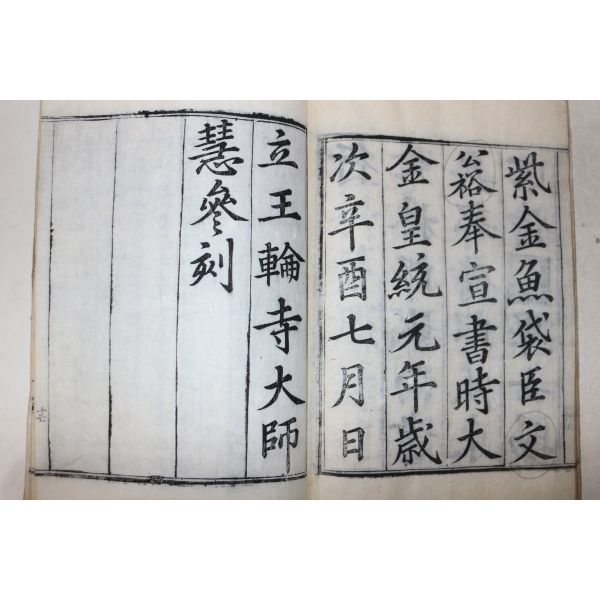 紫金魚袋臣文
公裕奉宣書時大
金皇統元年歳
次辛酉七月日
立王輪寺大師
慧參刻